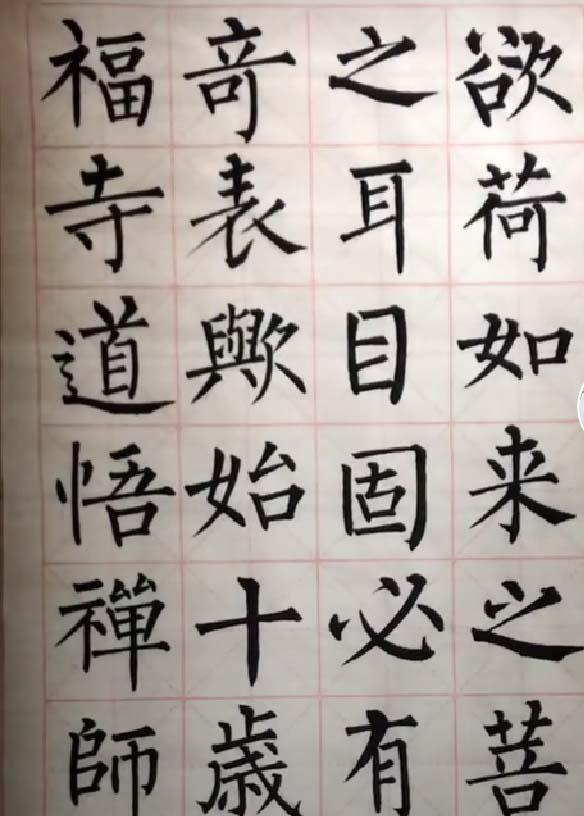 欲荷如来之菩
之耳目固必有
竒表歟始十歳
福寺道悟禪師